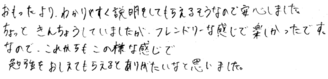 おもったより、わかりやすく説明をしてもらえるそうなので安心しました。
ちょっときんちょうしていましたが、フレンドリーな感じで楽しかったです
なので、これからもこの様な感じで
勉強をおしえてもらえるとありがたいなと思いました。